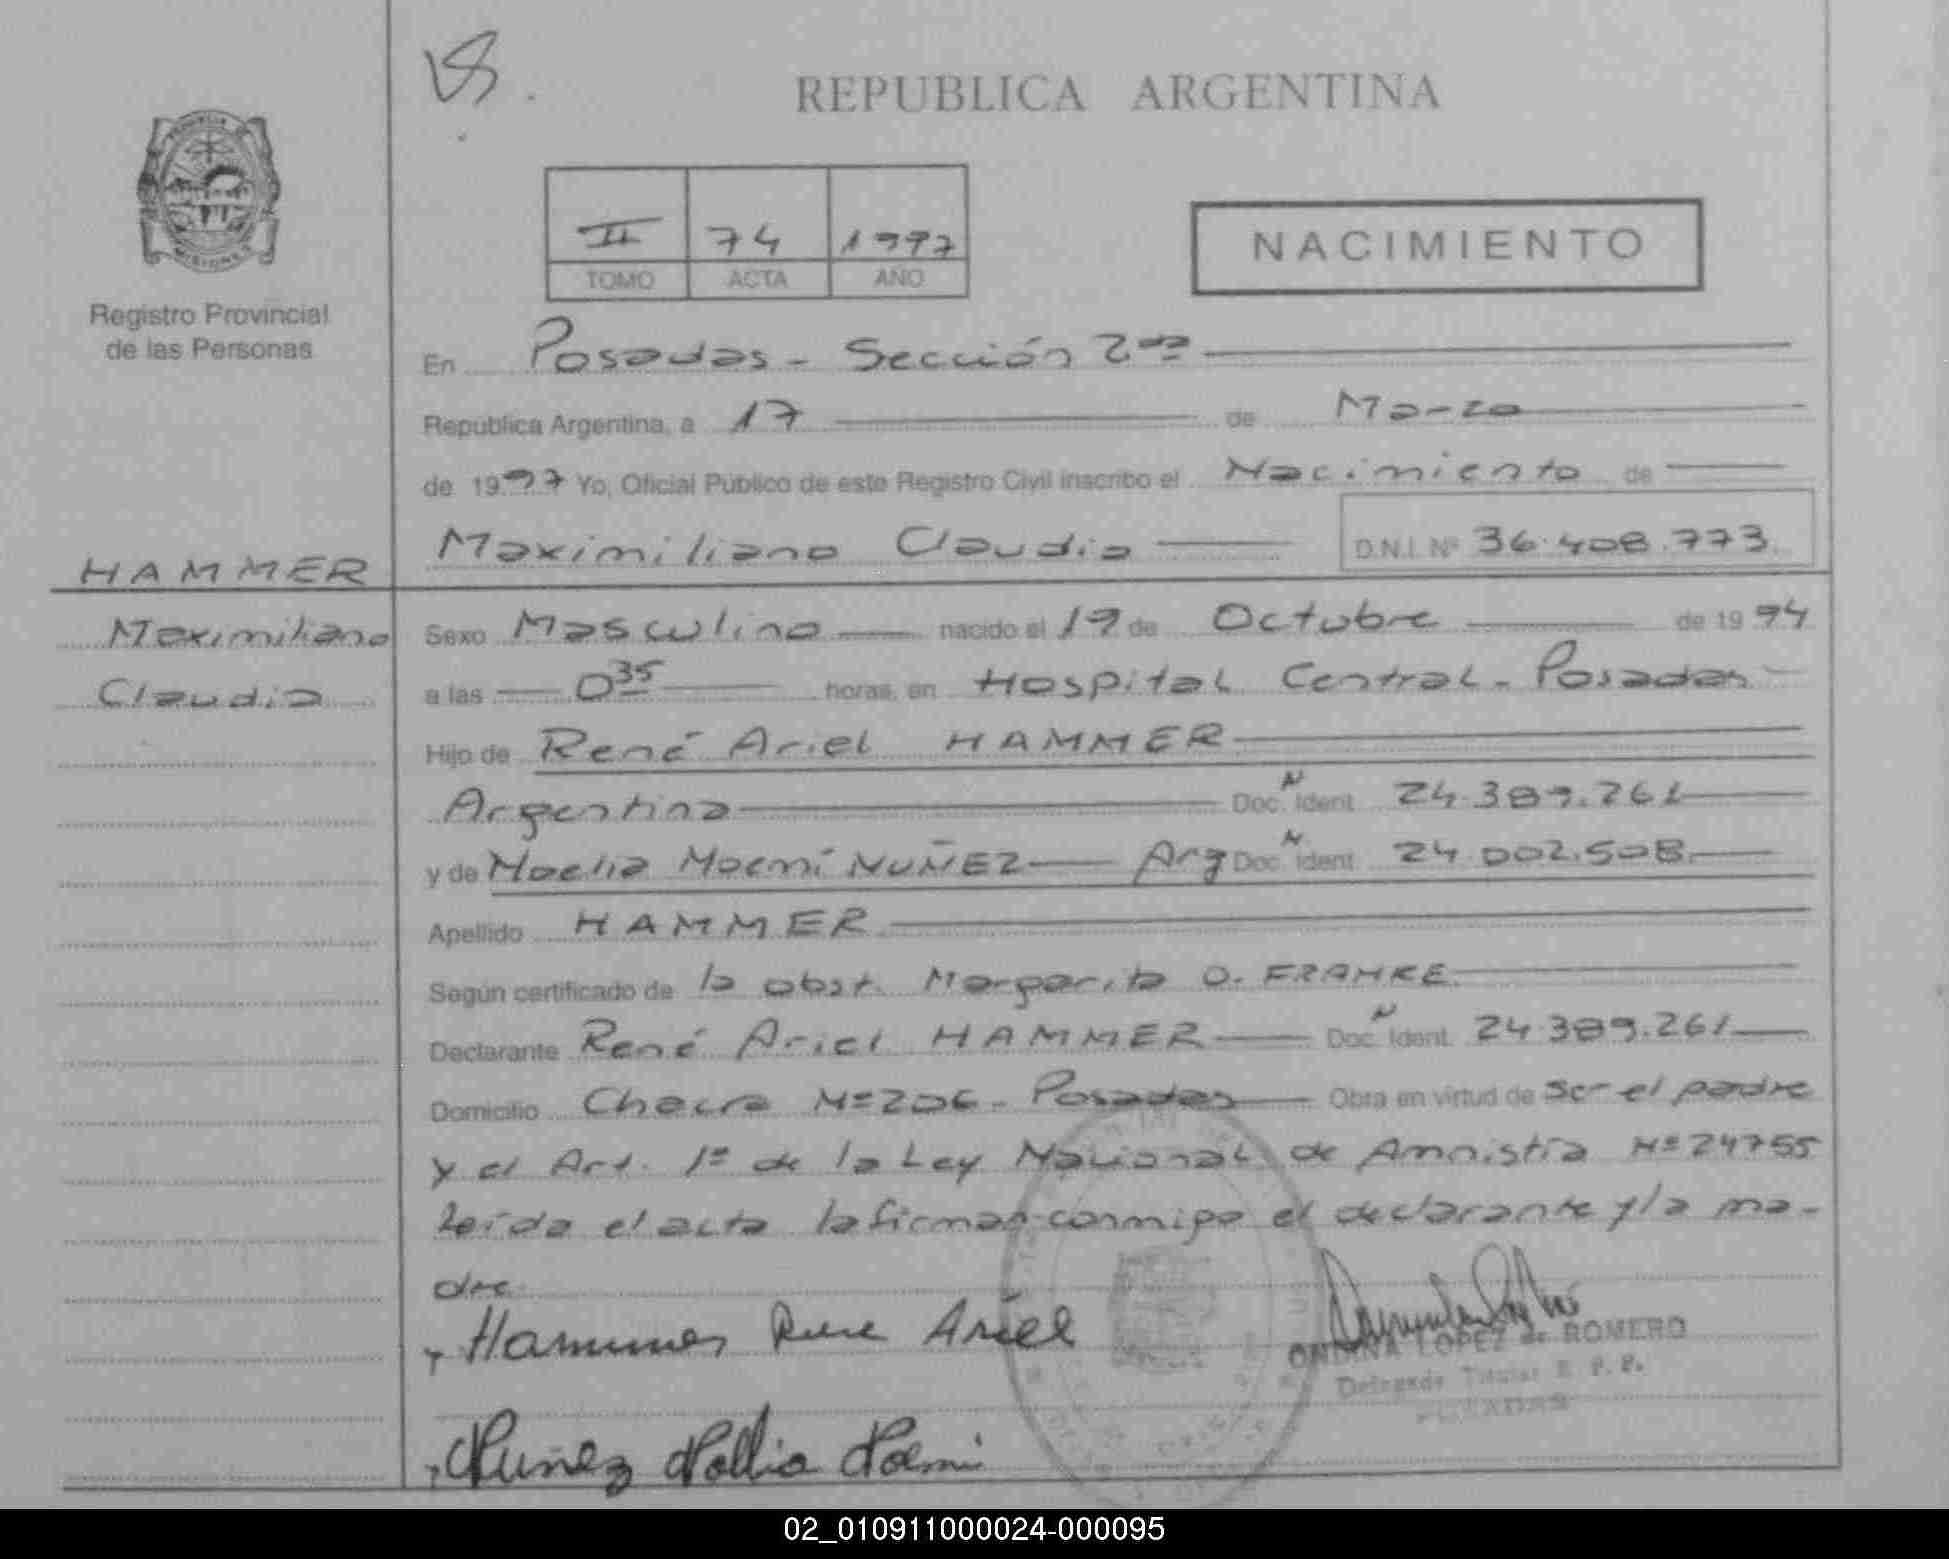 REPUBLICA ARGENTINA
II 74 1997
TOMO ACTA AÑO
NACIMIENTO
Registro Provincial
de las Personas
En Posadas - Sección 2da
Republica Argentina, a 17 de Marzo
de 1997 Yo, Oficial Público de este Registro Civil inscribo el Nacimiento de
Maximiliano Claudio D.N.I. Nº 36.408.773
HAMMER
Maximiliano
Claudio
Sexo Masculino nacido el 19 de Octubre de 1994
a las 0 35 horas, en Hospital Central - Posadas
Hijo de René Ariel HAMMER
Argentina Doc. N Ident 24.389.261
y de Noelia Noemí NUÑEZ Arg Doc. N Ident 24.002.508
Apellido HAMMER
Según certificado de la obst. Margarita O. FRANKE
Declarante René Ariel HAMMER Doc. N Ident. 24.389.261
Domicilio Chacra Nº 206 - Posadas Obra en virtud de ser el padre
y el Art. 1º de la Ley Nacional de Amnistía Nº 24755
Leída el acta la firman conmigo el declarante y la ma-
dre
Hammer Rene Ariel
ONDINA LOPEZ de ROMERO
Delegada Titular R. P. P.
POSADAS
Nuñez Nollia Noemi
02_010911000024-000095